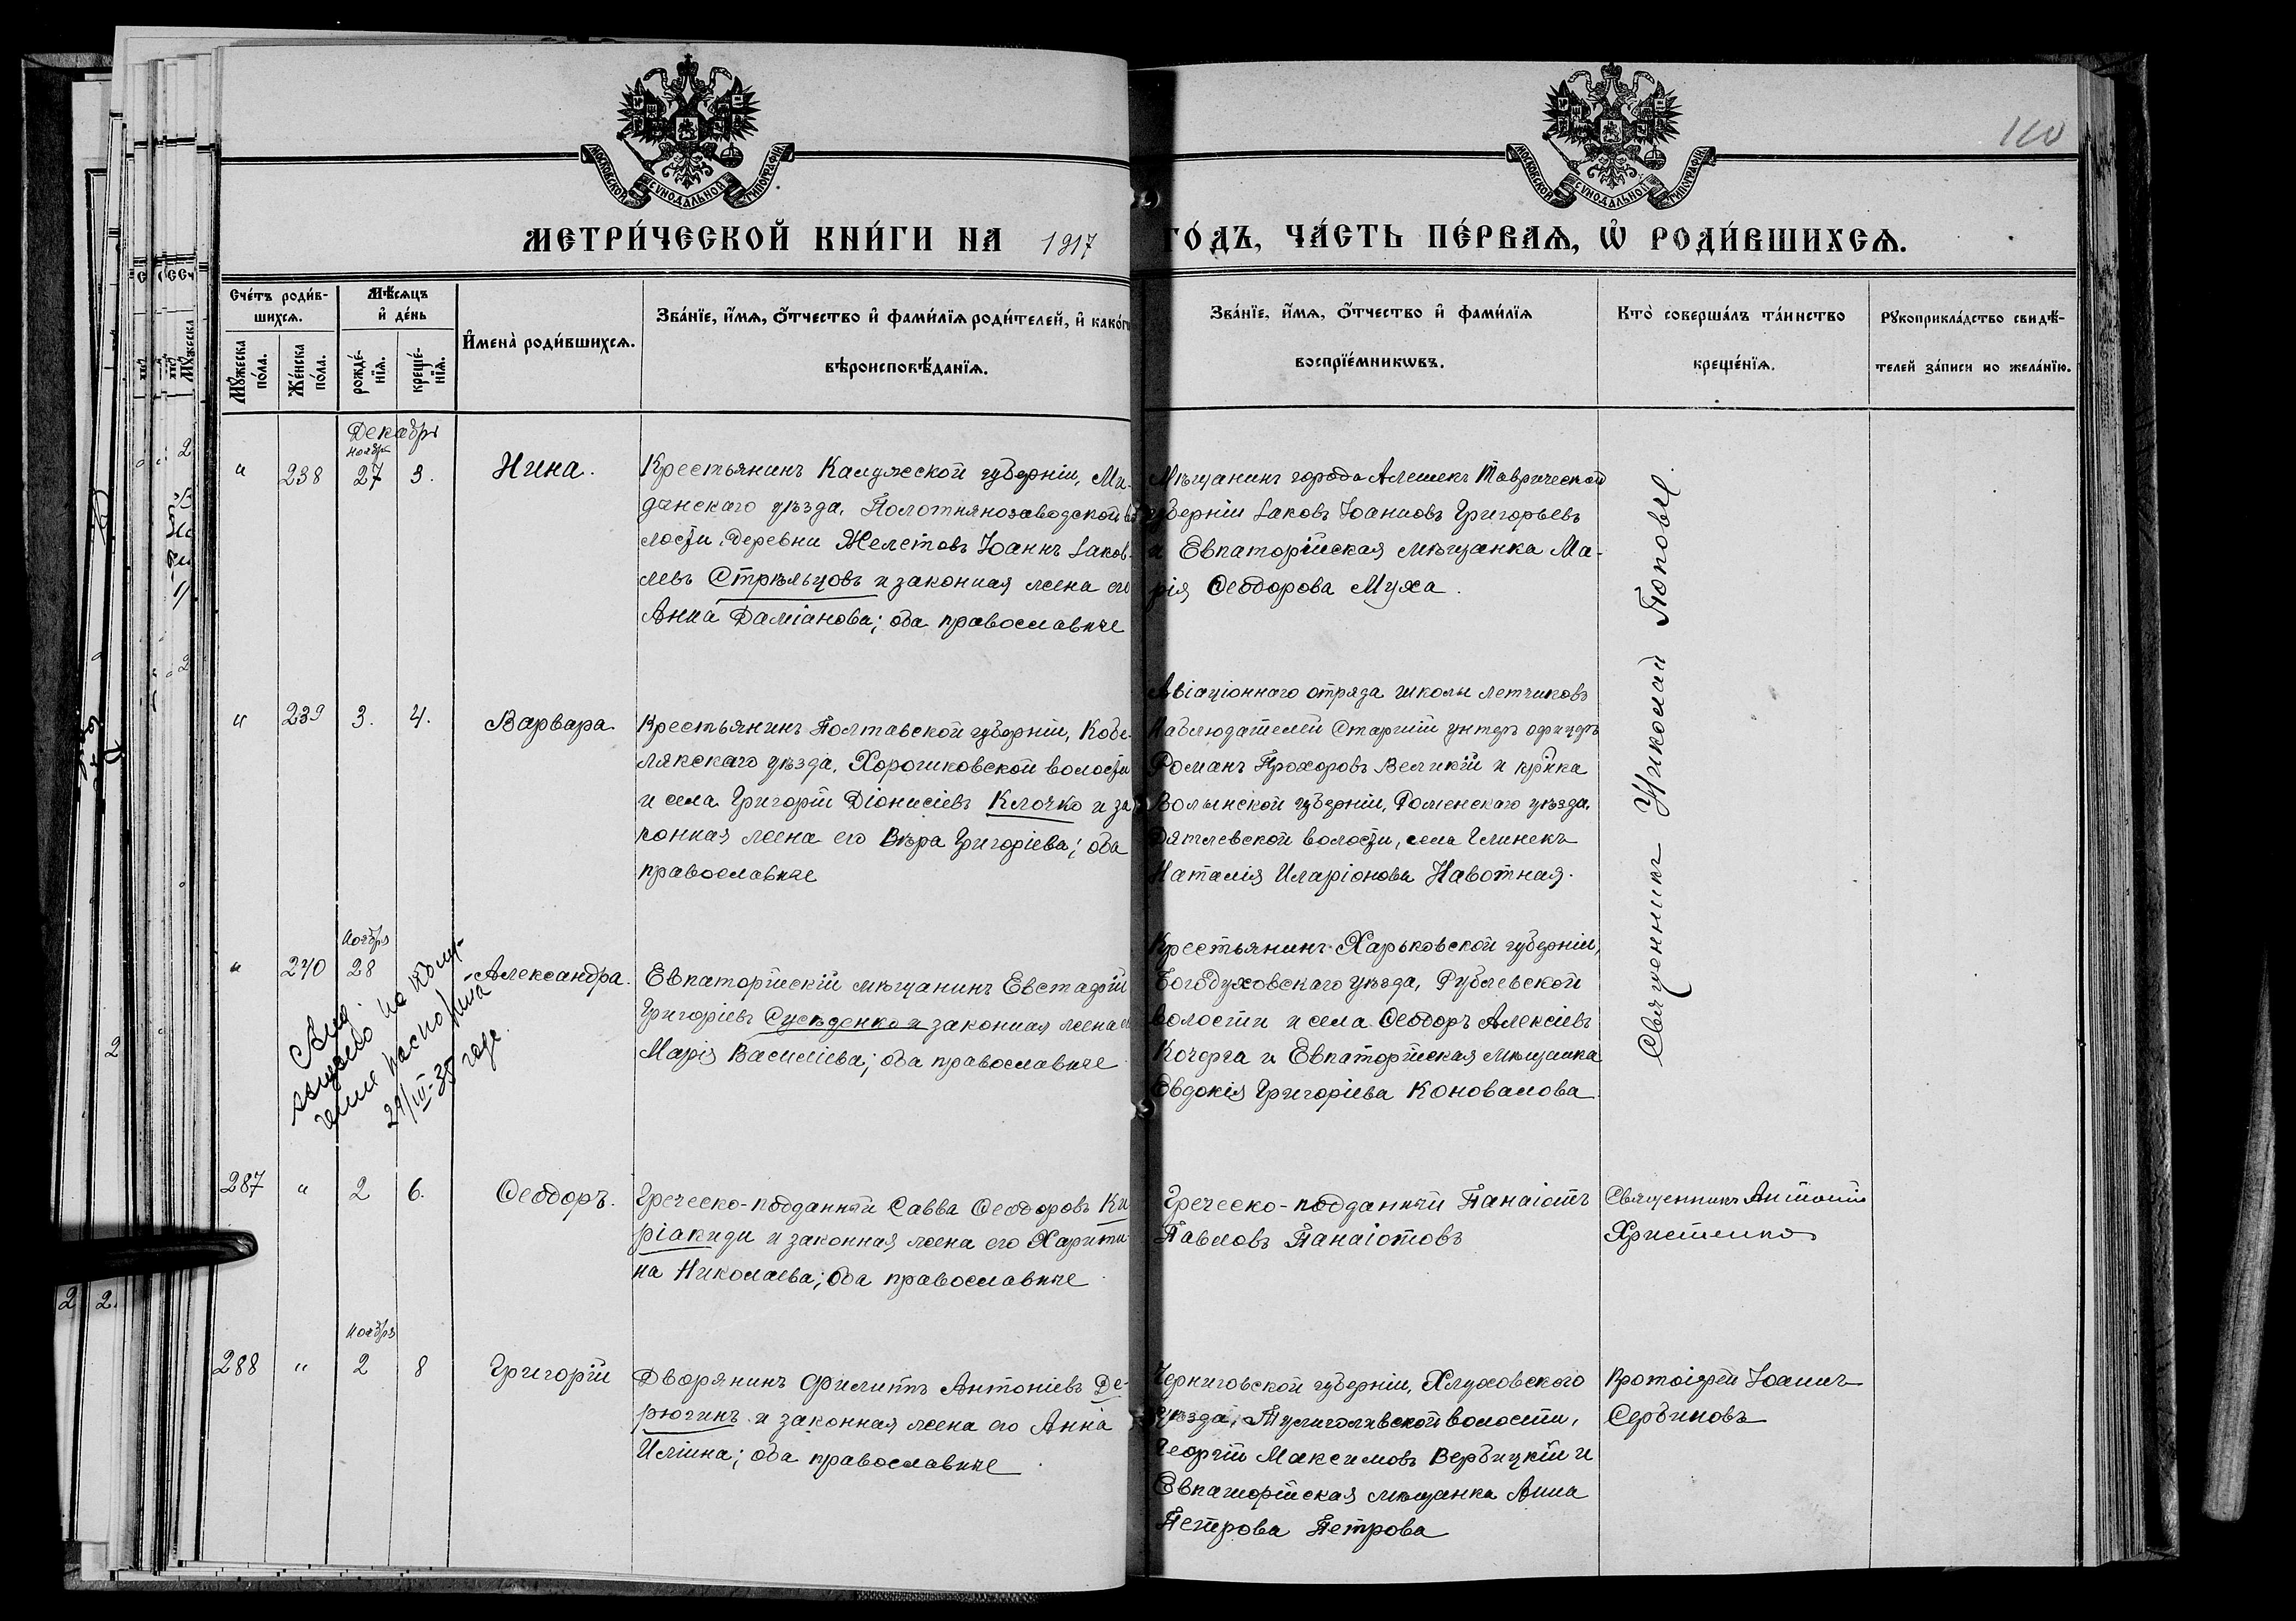 МОСКОВСКОЙ СѴНОДАЛЬНОЙ ТИПОГРАФІИ
МОСКОВСКОЙ СѴНОДАЛЬНОЙ ТИПОГРАФІИ
110
МЕТРИ́ЧЕСКОЙ КНИ́ГИ НА 1917
ГО́ДЪ, ЧА́СТЬ ПЕ́РВАѦ, Ѡ҆ РОДИ́ВШИХСѦ.
Сче́тъ роди́в-
шихсѧ.
Мѣ́сѧцъ
и҆ де́нь
Мꙋ́жеска
по́ла.
Же́нска
по́ла.
рожде́-
нїѧ.
креще́-
нїѧ.
И҆мена̀ роди́вшихсѧ.
Зва́нїе, и҆́мѧ, ѻ҆́тчество и҆ фами́лїѧ роди́телей, и҆ како́гw
вѣроисповѣ́данїѧ.
Зва́нїе, и҆́мѧ, ѻ҆́тчество и҆ фами́лїѧ
воспрїе́мникѡвъ.
Кто̀ соверша́лъ та́инство
креще́нїѧ.
Рꙋкоприкла́дство свидѣ́-
телей за́писи по жела́нїю.
Декабрь
Ноября
" 238 27 3. Нина.
Крестьянинъ Калужской губерніи, Ме-
дынскаго уѣзда, Полотнянозаводской во
лости, деревни Желетовъ Іоаннъ Іаков-
левъ Стрѣльцовъ и законная жена его
Анна Даміанова; оба православные
Мѣщанинъ города Алешекъ Таврической
губерніи Іаковъ Іоанновъ Григорьевъ
и Евпаторійская мѣщанка Ма-
рія Ѳеодорова Муха.
Священникъ Николай Поповъ.
" 239 3. 4. Варвара.
Крестьянинъ Полтавской губерніи, Кобе-
лякскаго уѣзда, Хорошковской волости
и села Григорій Діонисіевъ Клочко и за
конная жена его Вѣра Григоріева; оба
православные
Авіаціоннаго отряда школы летчиковъ
Наблюдателей Старшій унтеръ офицеръ
Романъ Прохоровъ Великій и кр-нка
Волынской губерніи, Роменскаго уѣзда,
Дятлевской волости, села Глинскъ
Наталія Иларіонова Навотная.
Ноября
" 240 28 Александра.
29/III-35 годе.
Евпаторійскій мѣщанинъ Евстафій
Григоріевъ Сусѣденко и законная жена его
Марія Василіева; оба православные
Крестьянинъ Харьковской губерніи,
Богодуховскаго уѣзда, Рублевской
волости и села Ѳеодоръ Алексіевъ
Кочерга и Евпаторійская мѣщанка
Евдокія Григоріева Коновалова
287 " 2 6. Ѳеодоръ.
Греческо-подданный Савва Ѳеодоровъ Ки
ріакиди и законная жена его Харити-
на Николаева; оба православные
Греческо-подданный Панаіотъ
Павловъ Панаіотовъ
Священникъ Антоній
Христенко
Ноября
288 " 2 8 Григорій
Дворянинъ Филиппъ Антоніевъ Де-
рюгинъ и законная жена его Анна
Иліина; оба православные
Черниговской губерніи, Хлуховского
уѣзда, Тулиголовской волости,
Георгій Максимовъ Вербицкій и
Евпаторійская мѣщанка Анна
Петрова Петрова
Протоіерей Іоаннъ
Сербиновъ